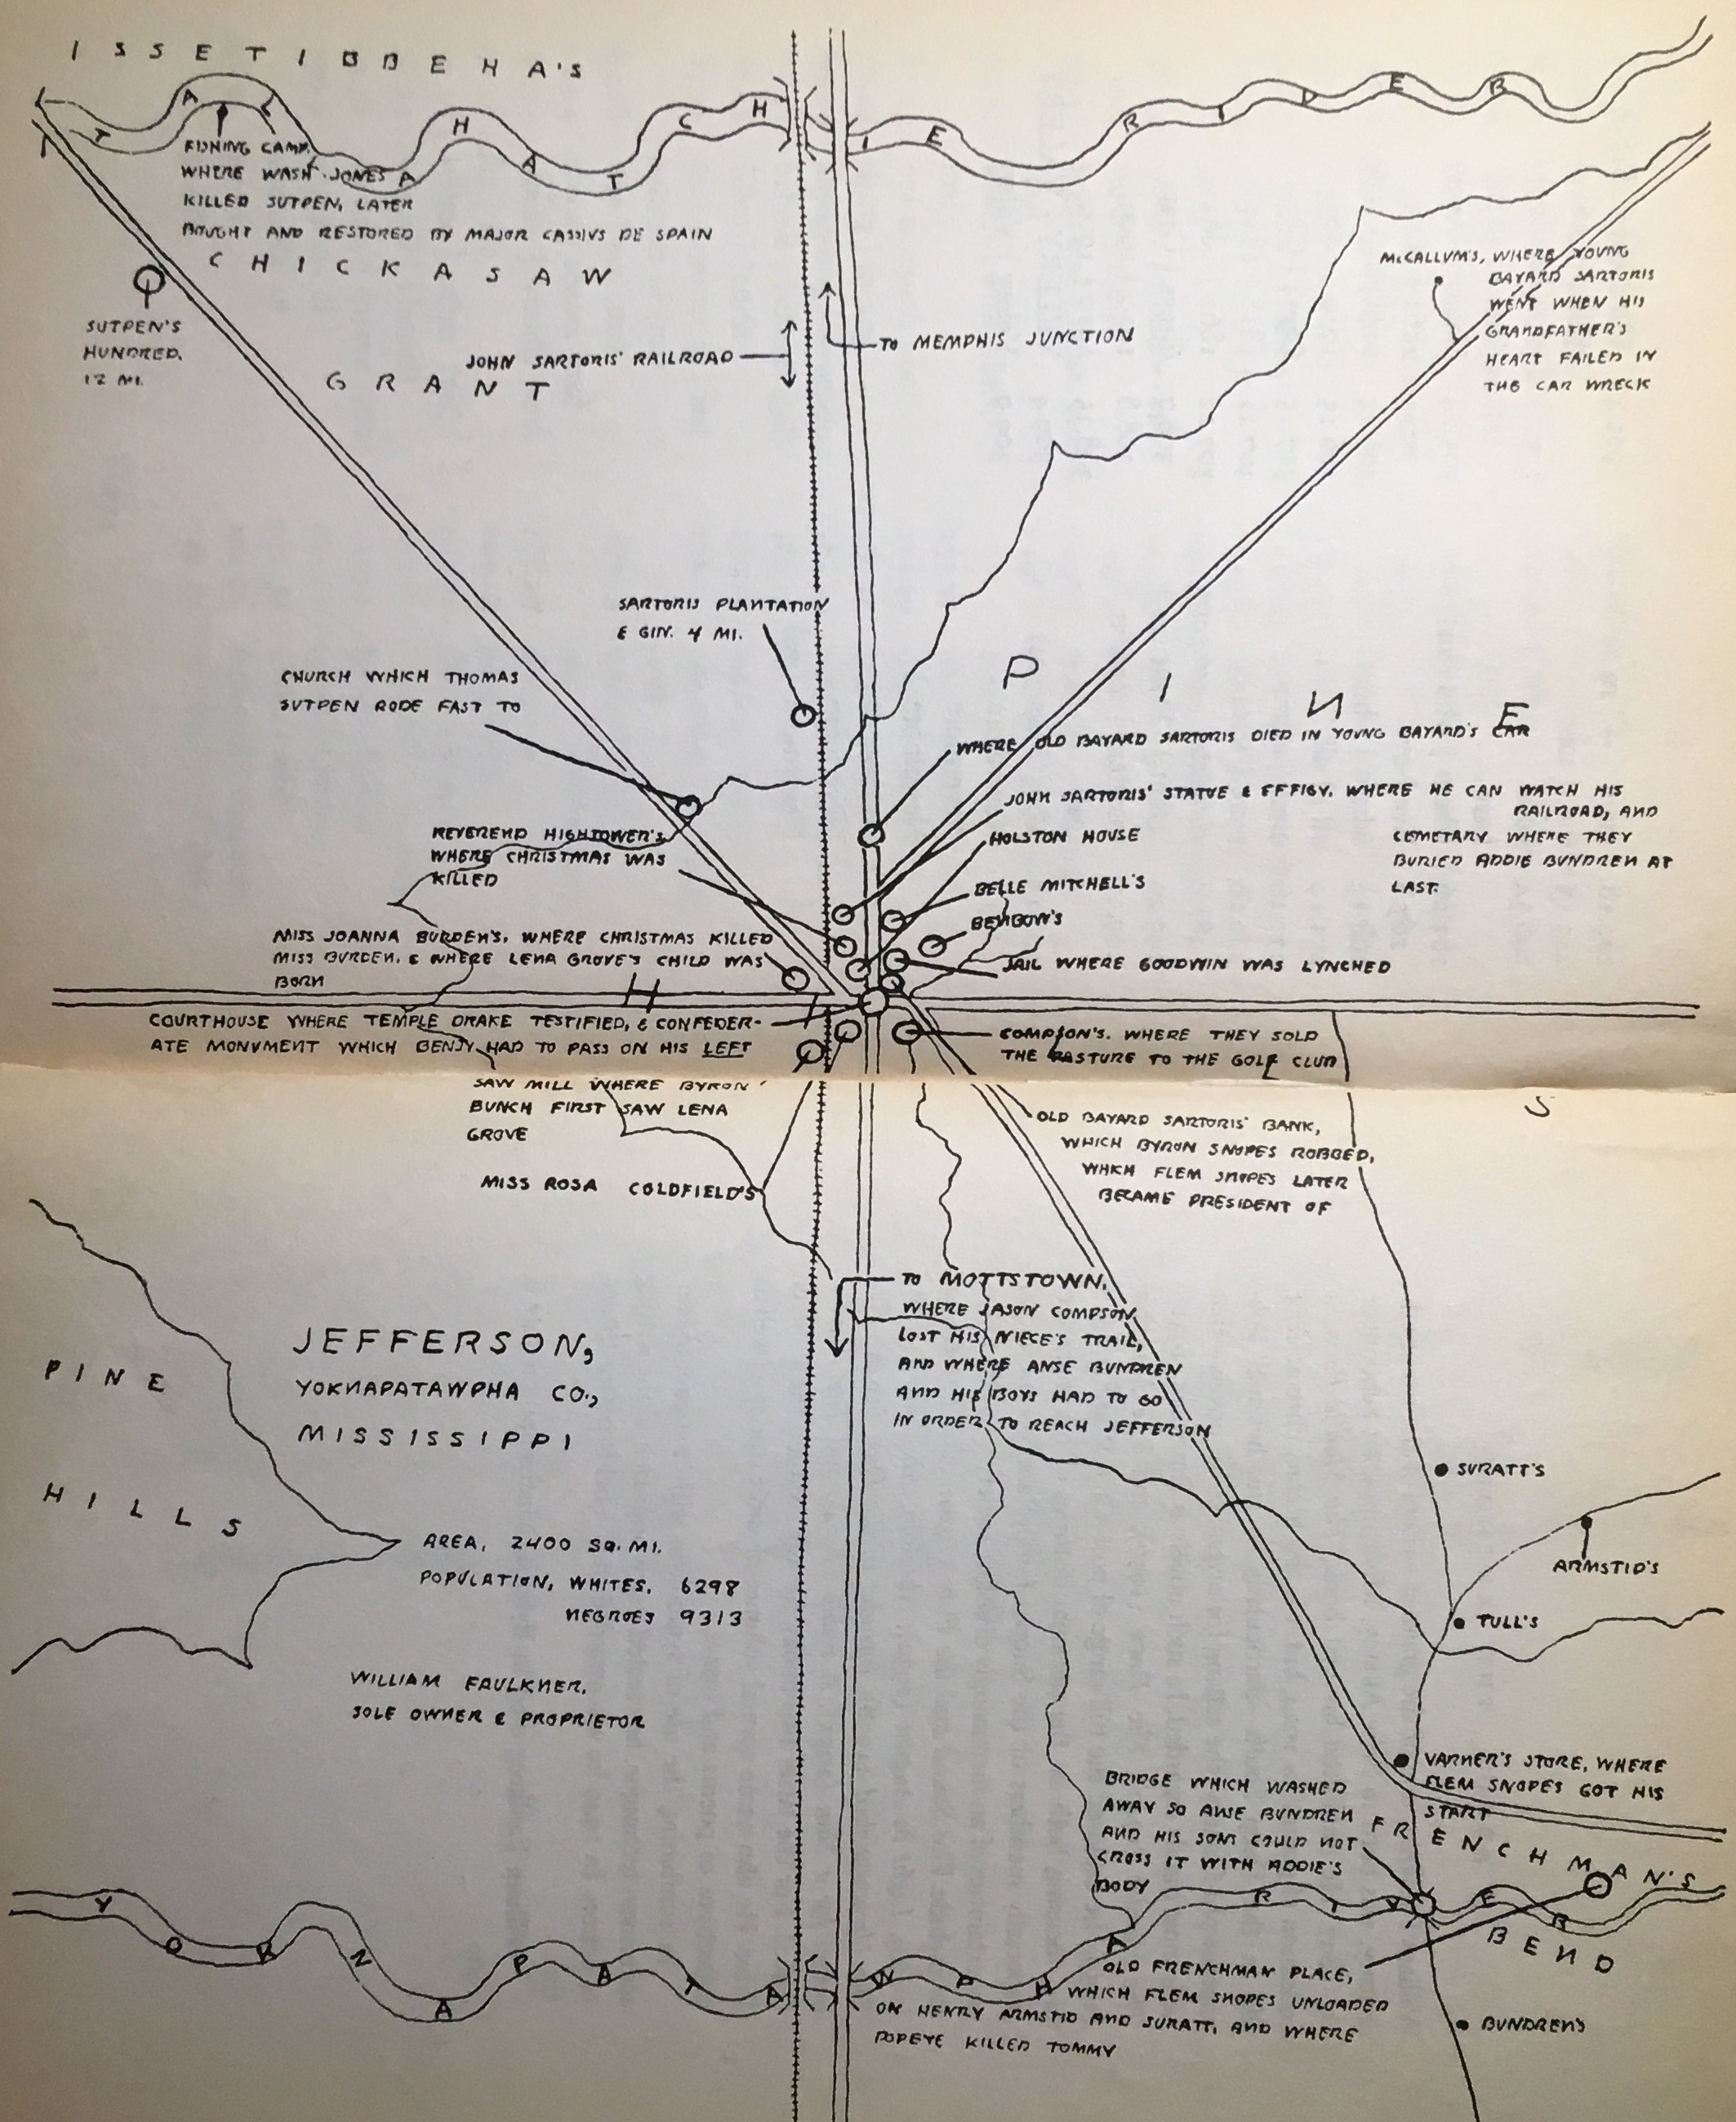 ISSETIBBEHA'S
TALLAHATCHIE RIVER
FISHING CAMP,
WHERE WASH JONES
KILLED SUTPEN, LATER
BOUGHT AND RESTORED BY MAJOR CASSIUS DE SPAIN
CHICKASAW
GRANT
SUTPEN'S
HUNDRED,
12 MI.
JOHN SARTORIS' RAILROAD
TO MEMPHIS JUNCTION
McCALLUM'S, WHERE YOUNG
BAYARD SARTORIS
WENT WHEN HIS
GRANDFATHER'S
HEART FAILED IN
THE CAR WRECK
SARTORIS PLANTATION
& GIN. 4 MI.
CHURCH WHICH THOMAS
SUTPEN RODE FAST TO
PINE
WHERE OLD BAYARD SARTORIS DIED IN YOUNG BAYARD'S CAR
JOHN SARTORIS' STATUE & EFFIGY, WHERE HE CAN WATCH HIS
RAILROAD, AND
CEMETARY WHERE THEY
BURIED ADDIE BUNDREN AT
LAST.
HOLSTON HOUSE
REVEREND HIGHTOWER'S,
WHERE CHRISTMAS WAS
KILLED
BELLE MITCHELL'S
BENBOW'S
MISS JOANNA BURDEN'S, WHERE CHRISTMAS KILLED
MISS BURDEN, & WHERE LENA GROVE'S CHILD WAS
BORN
JAIL WHERE GOODWIN WAS LYNCHED
H I
COURTHOUSE WHERE TEMPLE DRAKE TESTIFIED, & CONFEDER-
ATE MONUMENT WHICH BENJY HAD TO PASS ON HIS LEFT
COMPSON'S, WHERE THEY SOLD
THE PASTURE TO THE GOLF CLUB
S
SAW MILL WHERE BYRON
BUNCH FIRST SAW LENA
GROVE
MISS ROSA COLDFIELD'S
OLD BAYARD SARTORIS' BANK,
WHICH BYRON SNOPES ROBBED,
WHICH FLEM SNOPES LATER
BECAME PRESIDENT OF
TO MOTTSTOWN,
WHERE JASON COMPSON
LOST HIS NIECE'S TRAIL,
AND WHERE ANSE BUNDREN
AND HIS BOYS HAD TO GO
IN ORDER TO REACH JEFFERSON
PINE
HILLS
JEFFERSON,
YOKNAPATAWPHA CO.,
MISSISSIPPI
AREA, 2400 SQ. MI.
POPULATION, WHITES, 6298
NEGROES 9313
WILLIAM FAULKNER,
SOLE OWNER & PROPRIETOR
SURATT'S
ARMSTID'S
TULL'S
VARNER'S STORE, WHERE
FLEM SNOPES GOT HIS
START
BRIDGE WHICH WASHED
AWAY SO ANSE BUNDREN
AND HIS SONS COULD NOT
CROSS IT WITH ADDIE'S
BODY
FRENCHMAN'S
BEND
YOKNAPATAWPHA RIVER
OLD FRENCHMAN PLACE,
WHICH FLEM SNOPES UNLOADED
ON HENRY ARMSTID AND SURATT, AND WHERE
POPEYE KILLED TOMMY
BUNDREN'S